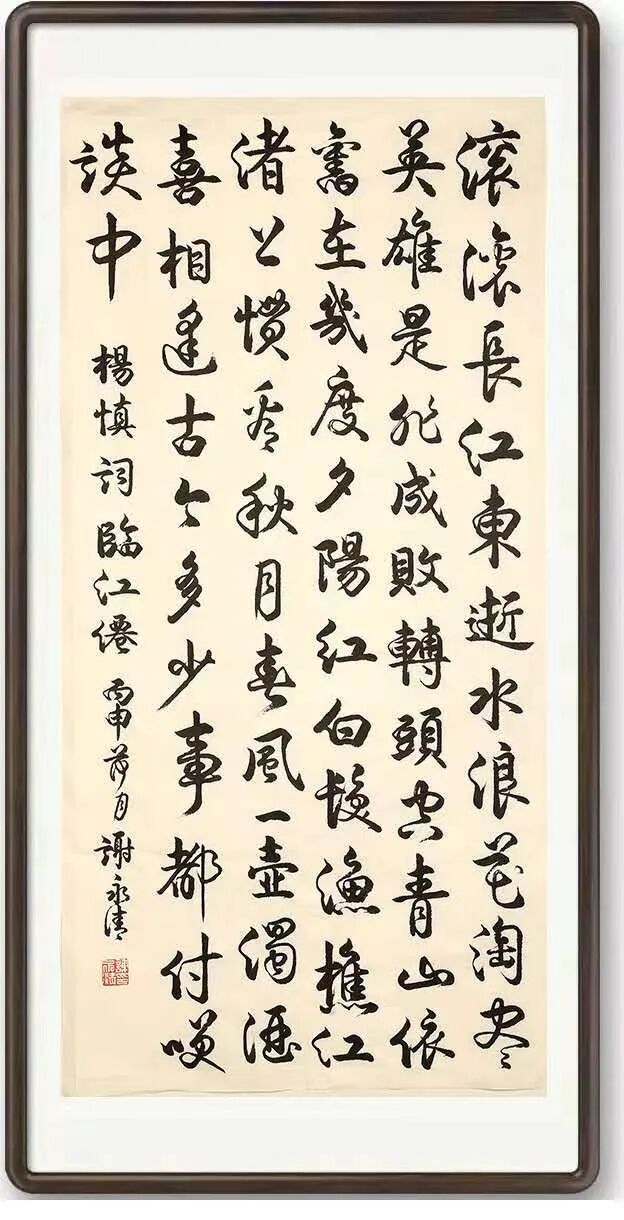 滚滚長江東逝水浪花淘尽
英雄是非成敗轉頭空青山依
舊在幾度夕陽紅白髮漁樵江
渚上慣看秋月春風一壺濁酒
喜相逢古今多少事都付笑
談中
楊慎詞臨江僊 丙申 月 謝永清